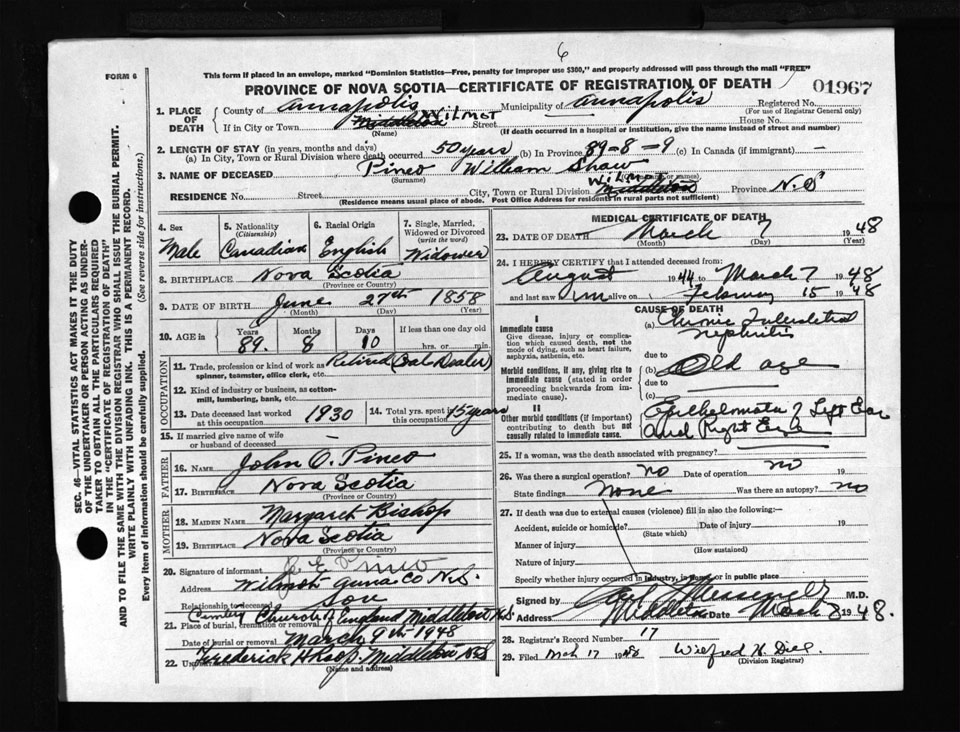 6
This form if placed in an envelope, marked "Dominion Statistics—Free, penalty for improper use $300," and properly addressed will pass through the mail "FREE"
FORM 6
PROVINCE OF NOVA SCOTIA—CERTIFICATE OF REGISTRATION OF DEATH
01967
SEC. 46—VITAL STATISTICS ACT MAKES IT THE DUTY
OF THE UNDERTAKER OR PERSON ACTING AS UNDER-
TAKER TO OBTAIN ALL THE PARTICULARS REQUIRED
IN THE "CERTIFICATE OF REGISTRATION OF DEATH"
AND TO FILE THE SAME WITH THE DIVISION REGISTRAR WHO SHALL ISSUE THE BURIAL PERMIT.
WRITE PLAINLY WITH UNFADING INK. THIS IS A PERMANENT RECORD.
Every item of information should be carefully supplied. (See reverse side for instructions.)
1. PLACE OF DEATH
County of Annapolis Municipality of Annapolis Registered No.
(For use of Registrar General only)
If in City or Town Middleton Wilmot Street House No.
(Name) (If death occurred in a hospital or institution, give the name instead of street and number)
2. LENGTH OF STAY (in years, months and days)
(a) In City, Town or Rural Division where death occurred 50 years (b) In Province 89-8-9 (c) In Canada (if immigrant) —
3. NAME OF DECEASED Pineo William Shaw
(Surname) names)
RESIDENCE No. Street City, Town or Rural Division Wilmot Middleton Province N.S
(Residence means usual place of abode. Post Office Address for residents in rural parts not sufficient)
4. Sex Male
5. Nationality (Citizenship) Canadian
6. Racial Origin English
7. Single, Married, Widowed or Divorced (write the word) Widower
8. BIRTHPLACE Nova Scotia
(Province or Country)
9. DATE OF BIRTH June 27th 1858
(Month) (Day) (Year)
10. AGE in Years 89 Months 8 Days 10 If less than one day old hrs. or min.
OCCUPATION
11. Trade, profession or kind of work as spinner, teamster, office clerk, etc. Retired (Coal Dealer)
12. Kind of industry or business, as cotton-mill, lumbering, bank, etc.
13. Date deceased last worked at this occupation 1930
14. Total yrs. spent in this occupation 15 years
15. If married give name of wife or husband of deceased
FATHER
16. NAME John O. Pineo
17. BIRTHPLACE Nova Scotia
(Province or Country)
MOTHER
18. MAIDEN NAME Margaret Bishop
19. BIRTHPLACE Nova Scotia
(Province or Country)
20. Signature of informant E Pineo
Wilmot Anna Co N.S.
Relationship to deceased Son
21. Place of burial, cremation or removal Church of England Middleton N.S.
Date of burial or removal March 9th 1948
22. Frederick H Roop. Middleton N.S
(Name and address)
MEDICAL CERTIFICATE OF DEATH
23. DATE OF DEATH March 7 1948
(Month) (Day) (Year)
24. I HEREBY CERTIFY that I attended deceased from:
August 1944 to March 7 1948
and last saw him alive on February 15 1948
CAUSE OF DEATH
I
Immediate cause
Give disease, injury or complication which caused death, not the mode of dying, such as heart failure, asphyxia, asthenia, etc.
(a) Chronic Nephritis
due to
Morbid conditions, if any, giving rise to immediate cause (stated in order proceeding backwards from immediate cause)
(b) Old age
due to
(c)
II
Other morbid conditions (if important) contributing to death but not causally related to immediate cause.
Epithelomata of Left Ear
and Right Ear
25. If a woman, was the death associated with pregnancy?
26. Was there a surgical operation? no Date of operation no 19
State findings none Was there an autopsy? no
27. If death was due to external causes (violence) fill in also the following:—
Accident, suicide or homicide? Date of injury 19
(State which)
Manner of injury
(How sustained)
Nature of injury
Specify whether injury occurred in industry, in home or in public place
Signed by Messenger M.D.
Address Middleton Date March 8 1948.
28. Registrar's Record Number 17
29. Filed Mch 17 1948 Wilfred H. Diel.
(Division Registrar)